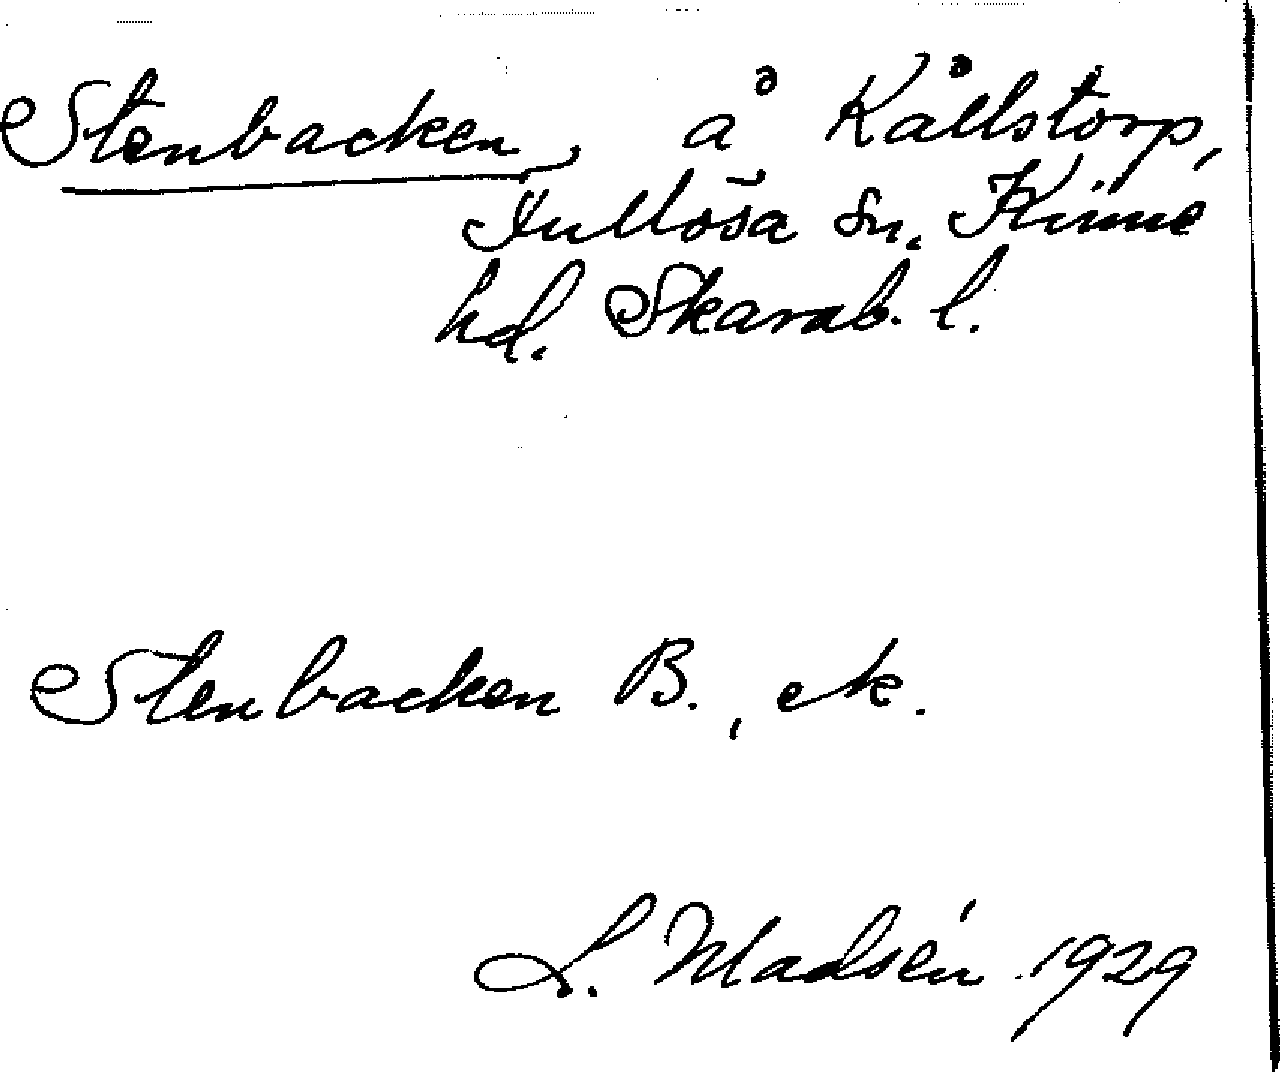 Stenbacken, å Kållstorp,
Fullösa sn. Kinne
hd. Skarab. l.
Stenbacken B., ek.
L. Madsén 1929